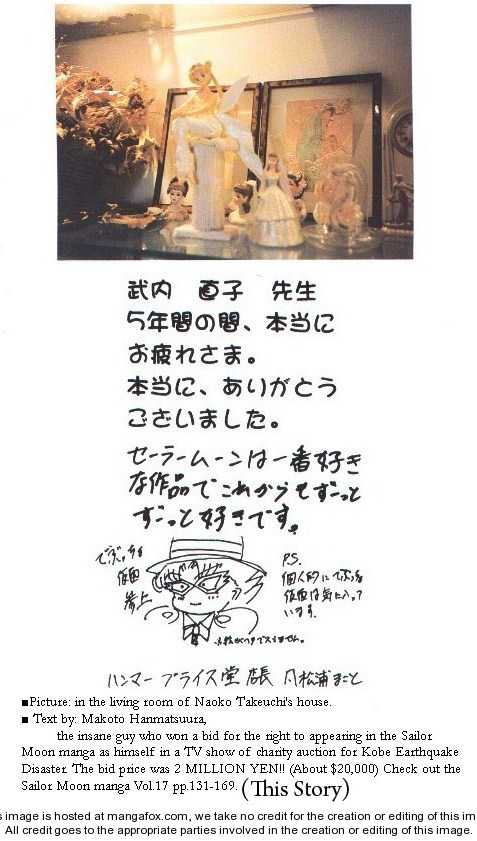 武内 直子 先生
5年間の間、本当に
お疲れさま。
本当に、ありがとう
ございました。
セーラームーンは一番好き
な作品でこれからもずーっと
ずーっと好きです。
仮面
参上
P.S.
個人的に
仮面は気に入って
います。
ハンマープライス堂 店長 凡松浦まこと
■Picture: in the living room of Naoko Takeuchi's house.
■ Text by: Makoto Hanmatsuura,
the insane guy who won a bid for the right to appearing in the Sailor
Moon manga as himself in a TV show of charity auction for Kobe Earthquake
Disaster. The bid price was 2 MILLION YEN!! (About $20,000) Check out the
Sailor Moon manga Vol.17 pp.131-169. (This Story)
s image is hosted at mangafox.com, we take no credit for the creation or editing of this im
All credit goes to the appropriate parties involved in the creation or editing of this image.